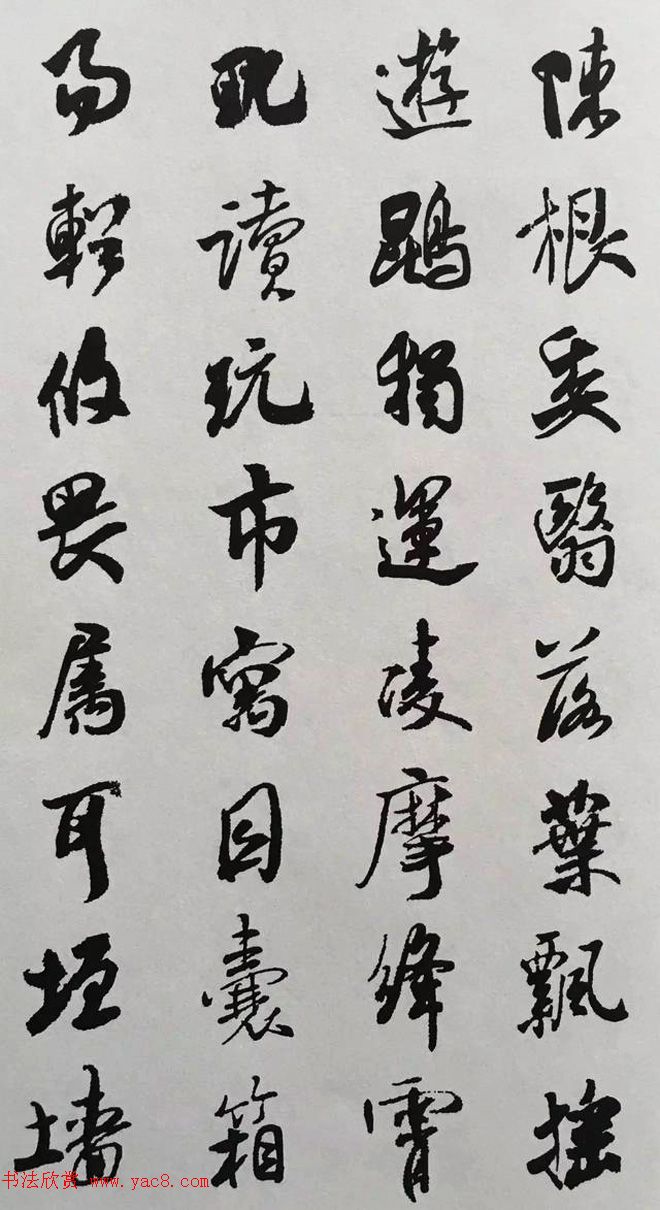 陳根委翳落葉飄搖
遊鵾獨運凌摩絳霄
耽讀玩市寓目囊箱
易輶攸畏属耳垣墻
书法欣赏 www.yac8.com